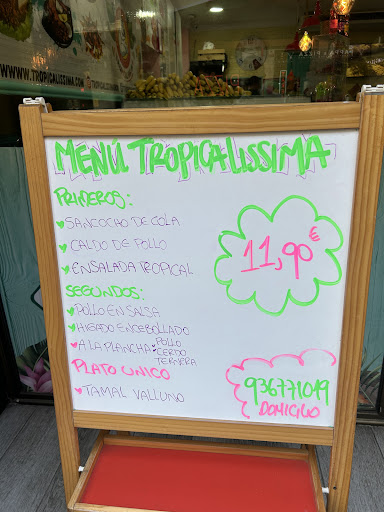 WWW.TROPICALISSIMA.COM
MENÚ TROPICALISSIMA
PRIMEROS:
SANCOCHO DE COLA
CALDO DE POLLO
ENSALADA TROPICAL
11,90€
SEGUNDOS:
POLLO EN SALSA
HIGADO ENCEBOLLADO
A LA PLANCHA: POLLO
CERDO
TERNERA
PLATO UNICO
TAMAL VALLUNO
936771049
DOMICILIO